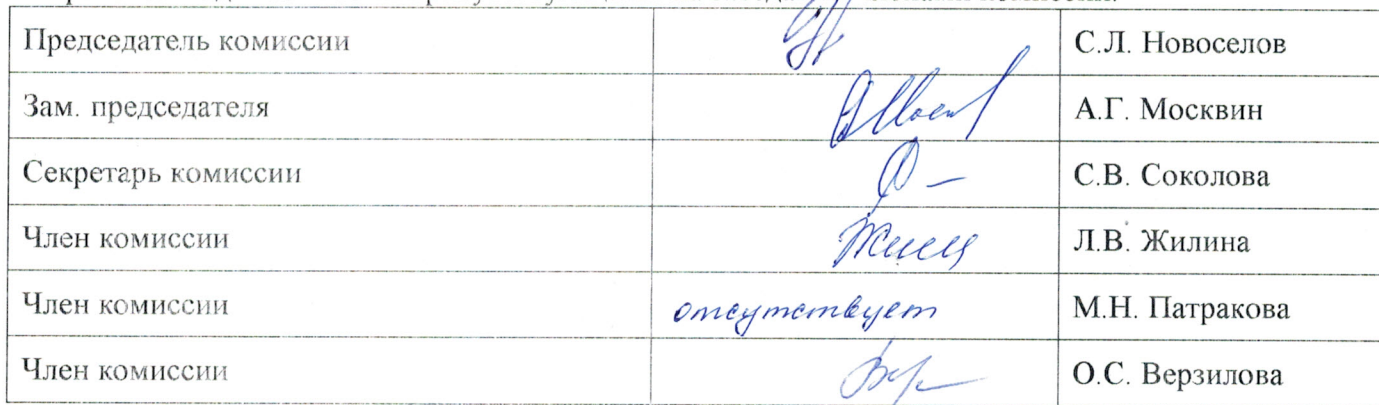 Председатель комиссии С.Л. Новоселов
Зам. председателя А.Г. Москвин
Секретарь комиссии С.В. Соколова
Член комиссии Л.В. Жилина
Член комиссии отсутствует М.Н. Патракова
Член комиссии О.С. Верзилова